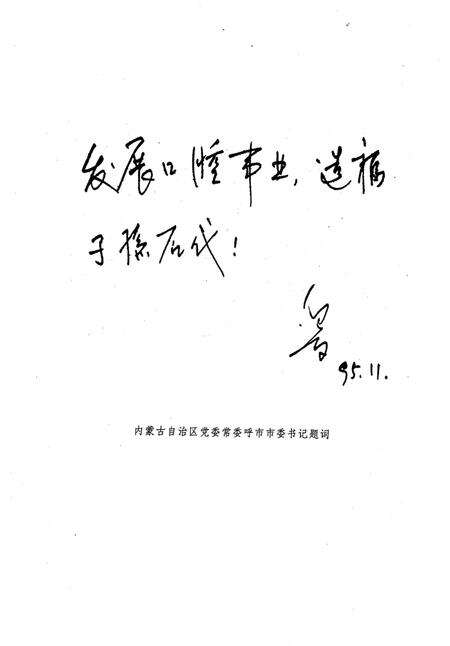 发展口腔事业，造福
子孙后代！
白音
95.11.
内蒙古自治区党委常委呼市市委书记题词